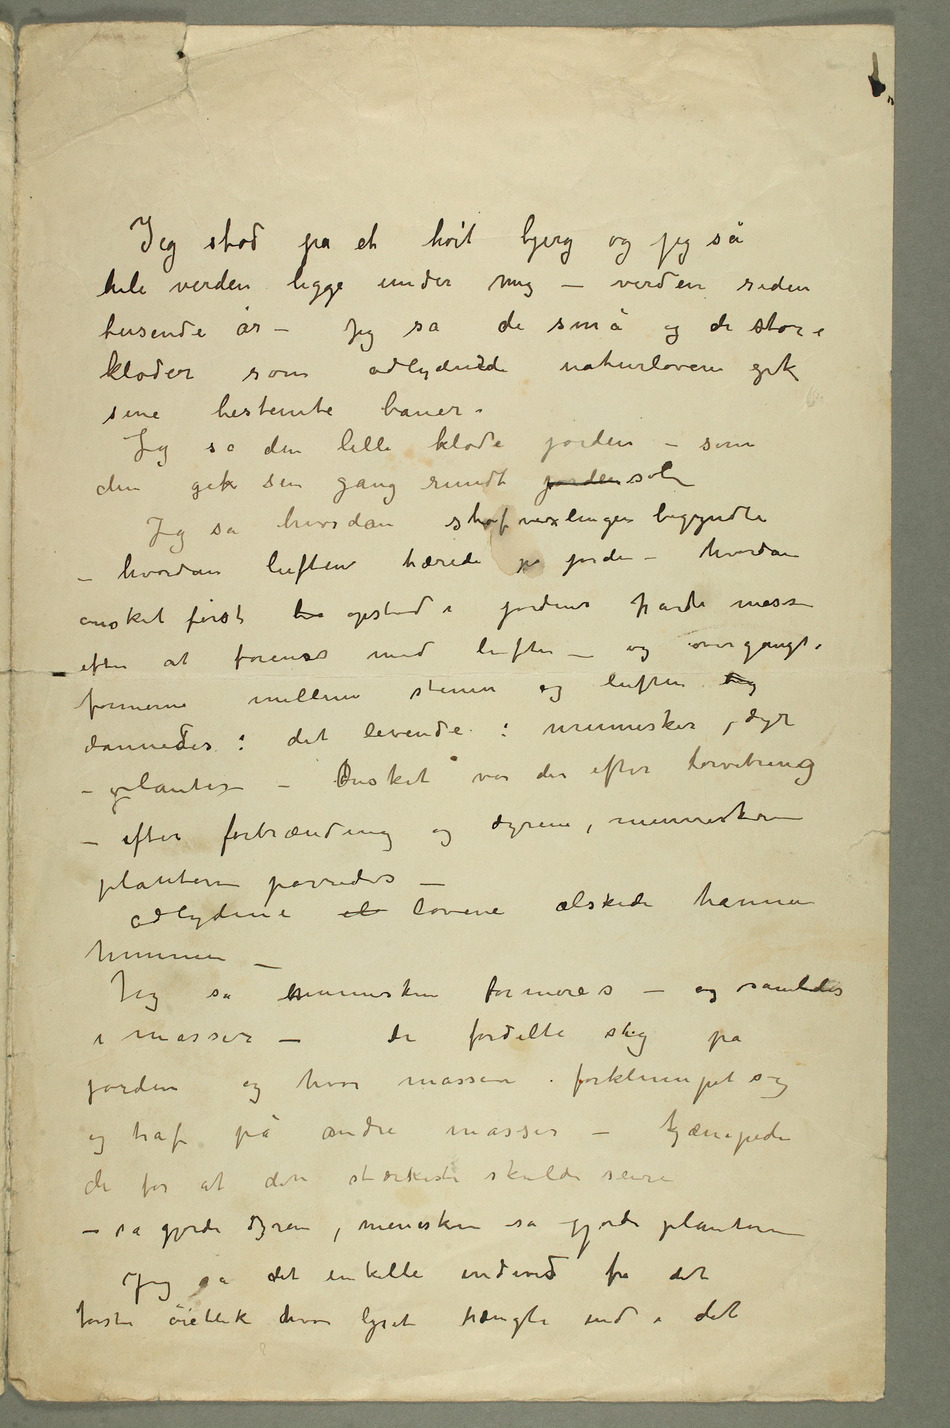 Jeg stod på et höit bjerg og jeg så
hele verden ligge under mig — verden siden
tusende år — Jeg så de små og de store
kloder som adlydende naturlovene gik
sine bestemte baner.
Jeg så den lille klode jorden — som
den gik sin gang rundt jorden solen
Jeg så hvordan stofvexlingen begyndte
— hvordan luften tærede på jorden — hvordan
önsket först opstod i jordens hårde masse
efter at forenes med luften — og overgangs-
formerne mellem stenen og luften
dannedes: det levende: mennesker, dyr
— planter — Önsket var der efter forvitring
— efter forbrænding og dyrene, menneskene
planterne parredes —
adlydene lovene elskede hannen
hunnen —
Jeg så menneskene formeres — og samledes
i masser — de fordelte sig på
jorden og hvor massen forklumpet sig
og traf på andre masser — kjæmpede
de for at den stærkeste skulde seire
— så gjorde dyrene, meneskene så gjorde planterne
Jeg så det enkelte individ fra det
förste öieblik hvor lyset trængte ind i det